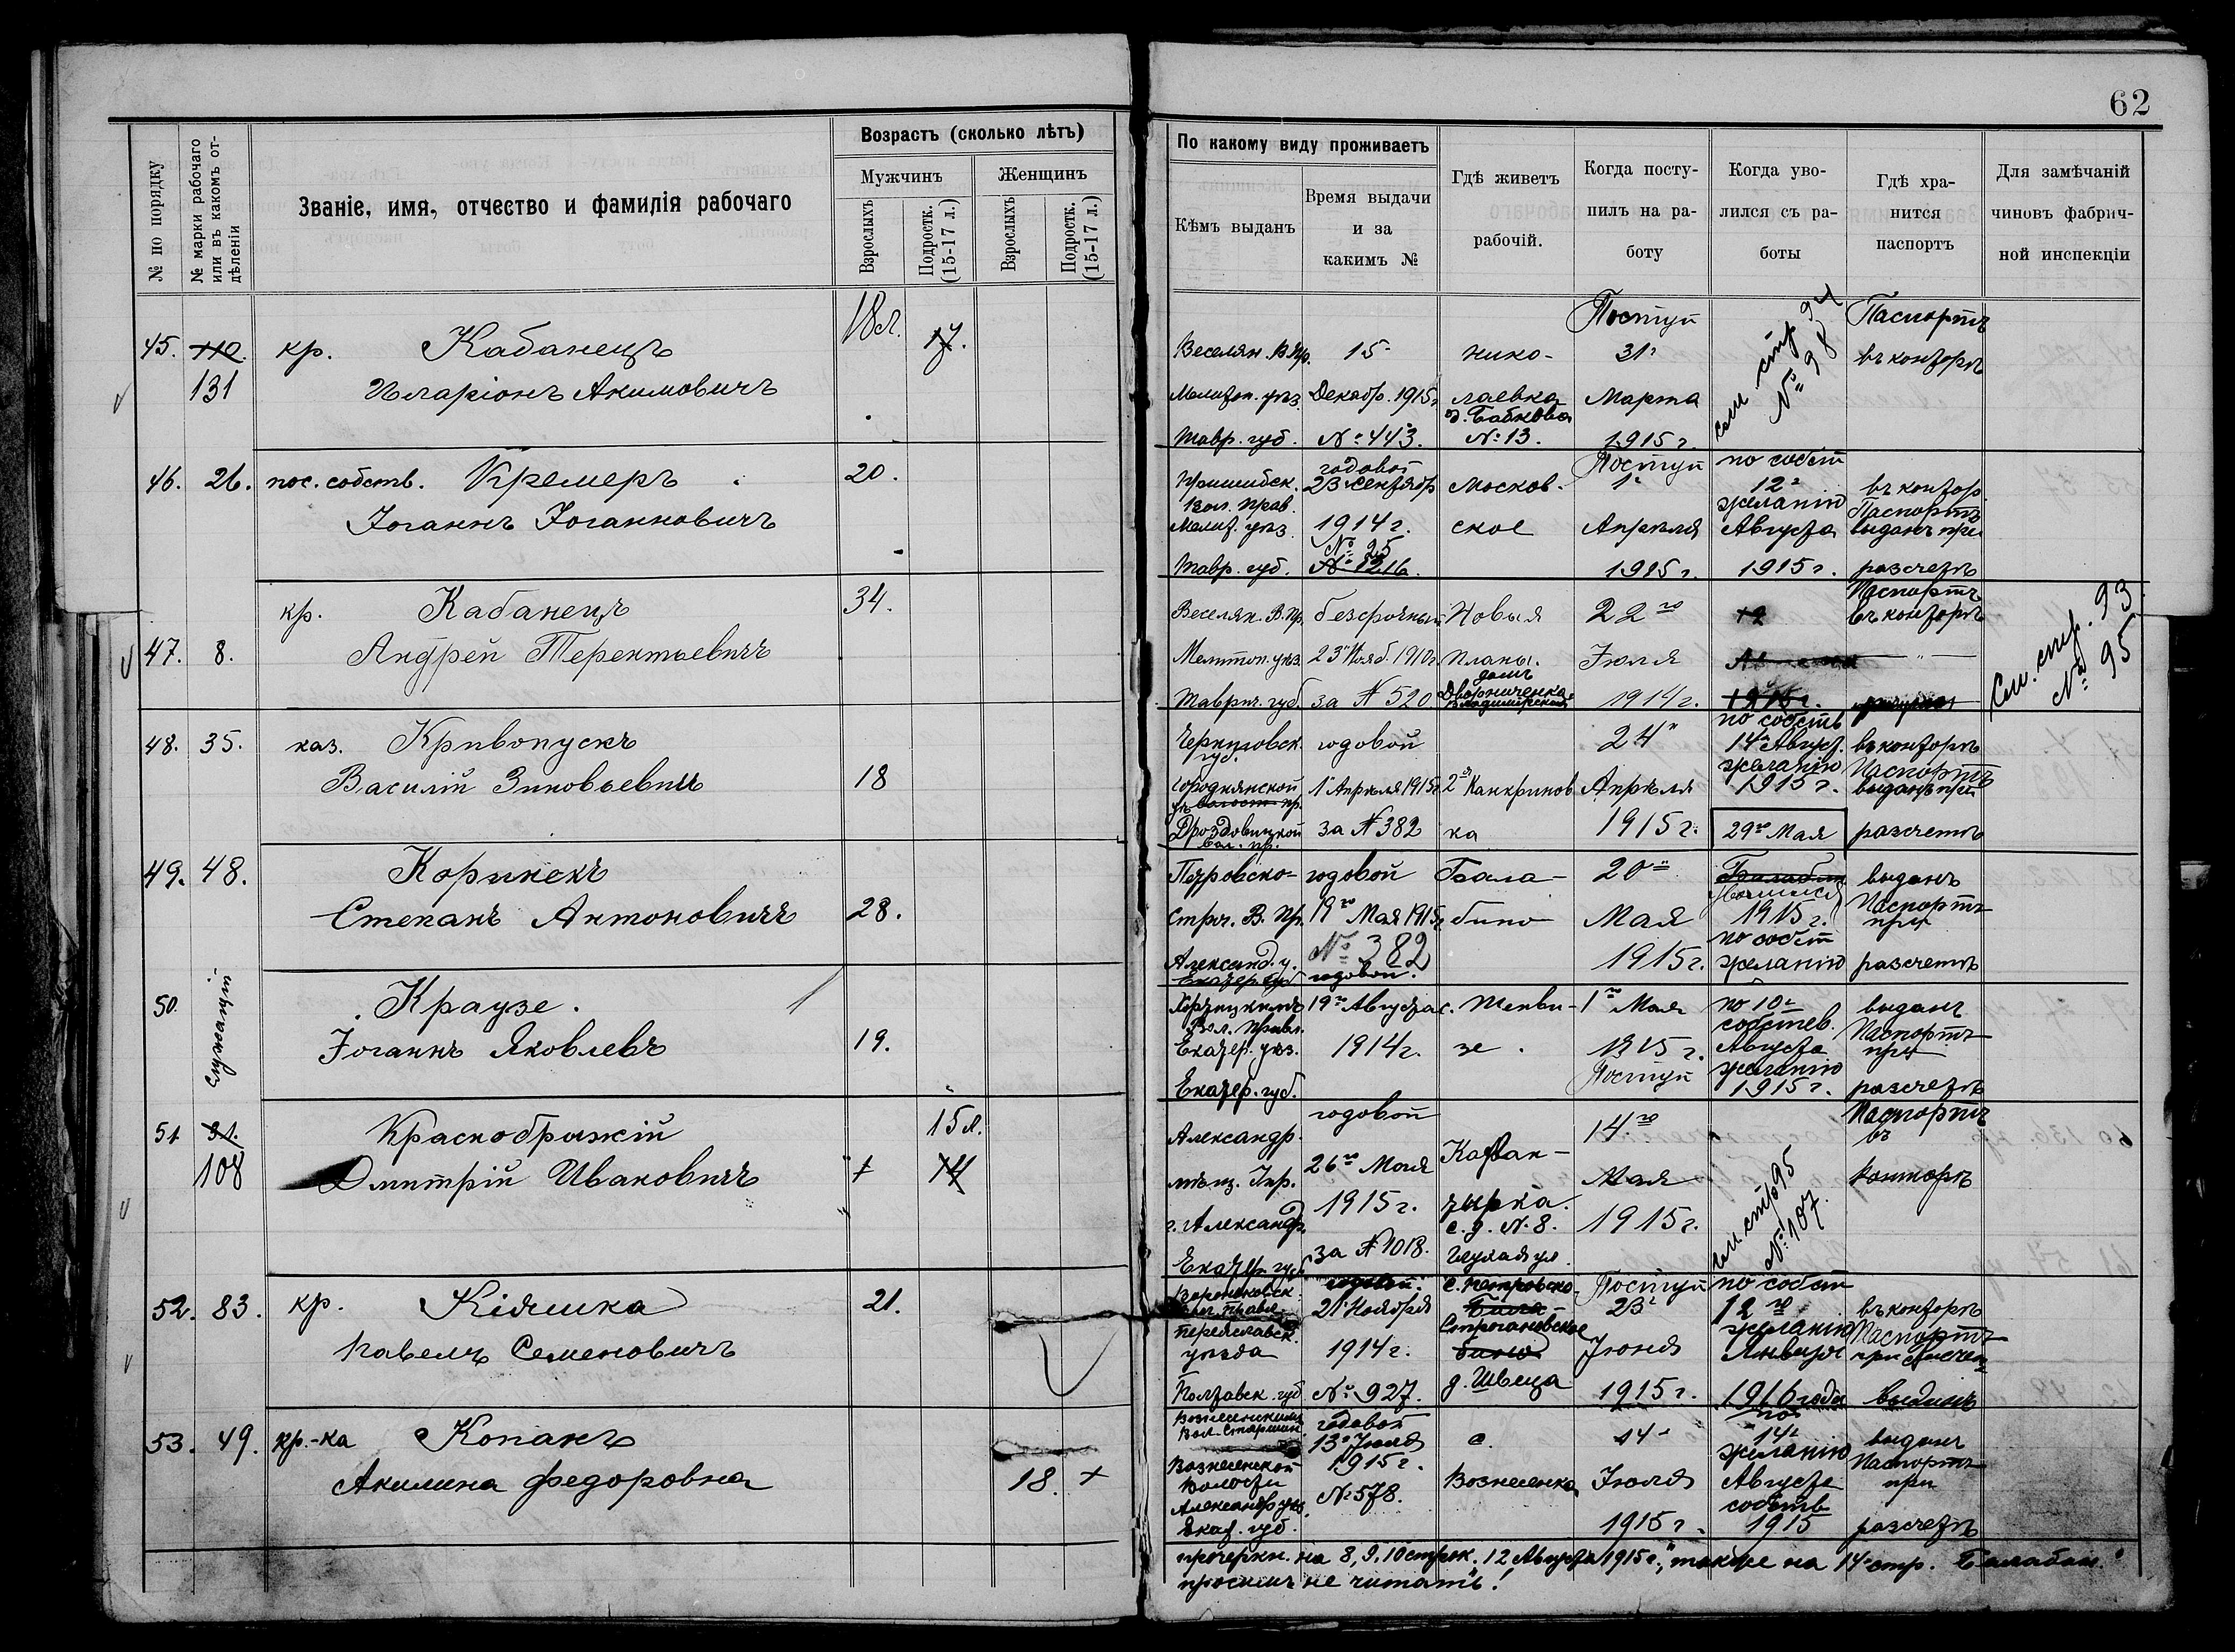 62
№ по порядку
№ марки рабочаго или въ какомъ от-дѣленіи
Званіе, имя, отчество и фамилія рабочаго
Возрастъ (сколько лѣтъ)
Мужчинъ
Женщинъ
Взрослыхъ
Подростк. (15-17 л.)
Взрослыхъ
Подростк. (15-17 л.)
По какому виду проживаетъ
Кѣмъ выданъ
Время выдачи
и за
какимъ №
Гдѣ живетъ
рабочій.
Когда посту-
пилъ на ра-
боту
Когда уво-
лился съ ра-
боты
Гдѣ хра-
нится
паспортъ
Для замѣчаній
чиновъ фабрич-
ной инспекціи
45. 110. кр. Кабанецъ 18 л. 17.
131 Иларіонъ Акимовичъ
Веселян. В. Пр. 15 нико- Поступ 31 см. стр. 94 № 98 Паспортъ въ конторѣ
Мелитоп. уѣз. Декабр. 1915 г лаевка Марта
д. Бабкова
Тавр. губ. № 443. № 13. 1915 г.
46. 26. пос. собств. Кремеръ 20.
Іоганнъ Іоганновичъ
Пришибск. годовой 23 Сентябр Москов- Поступ 1 по собст 12 въ контор.
Вол. Прав. желанію Паспортъ
Мелит. уѣз. 1914 г. ское Апрѣля Августа выданъ при
№ 25
Тавр. губ. № 1216. 1915 г. 1915 г. разсчетѣ
47. 8. кр. Кабанецъ 34.
Андрей Терентьевичъ
Веселян. В. пр. безсрочный Новыя 22го 12 Паспортъ въ конторѣ
Мелитоп. уѣз. 23 Нояб. 1910 г Планы. Іюля
домъ
Таврич. губ. за № 520. Дворниченка 1914 г. 1915 г.
Владимірская
См. стр. 93
№ 95
48. 35. каз. Кривопускъ
Василій Зиновьевичъ 18
Черниговск. годовой 24 по собств 14 Август. въ конторѣ
губ. желанію Паспортъ
Городнянской 1 Апрѣля 1915 г 2я Канкринов Апрѣля 1915 г. выданъ при
Дроздовицкой за № 382 ка 1915 г. 29го Мая разсчетѣ
вол. пр.
49. 48. Коринекъ
Степанъ Антоновичъ 28.
Петровско- годовой Бала- 20 выданъ
Строг. В. Пр. 19го Мая 1915 г бино Мая 1915 г. Паспортъ при
№ 382 по собст
Александ. у. 1915 г. желанію разсчетѣ
Екатер. губ годовой.
50. Служащій Краузе.
Іоганнъ Яковлевъ 19.
19го Августа с. Шенви- 1го Мая по 10 выданъ
Вол. Правл. собствев. Паспортъ
Екатер. уѣз. 1914 г. зе. 1915 г. Августа при
Поступ желанію
Екатер. губ. 1915 г. разсчетѣ
51 31. Краснобрыжій 15 л.
108 Дмитрій Ивановичъ + 14
Александр. годовой 14го Паспортъ
въ
мѣщ. Упр. 26го Мая Каран- Мая конторѣ
г. Александр. 1915 г. тырка. 1915 г. см. стр 95 № 107.
с. д. № 8.
Екатер. губ за № 1018.
52. 83. кр. Кіяшка 21.
Павелъ Семеновичъ
годовой с. Петровско- Поступ по собст
21 Ноября Била 23 12го въ конторѣ
Переяславск. Строгановское желанію Паспортъ
уѣзда 1914 г. бино Іюня Января
Полтавск. губ № 927. д. Швеца 1915 г. 1916 года выданъ
53. 49. кр.-ка Копанъ
Акилина Федоровна 18. +
Вознесенскимъ годовой по
Вол. Старшин. 13 Іюля с. 14 14 выданъ
Вознесенской 1915 г. желанію Паспортъ
Волости № 578. Вознесенка Іюля Августа при
Александр уѣз. собств
Екат. губ. 1915 г. 1915 разсчетѣ
прочеркн. на 8, 9, 10 строк. 12 Августа 1915 г., также на 14 стр. Балабан.
просимъ не читать!